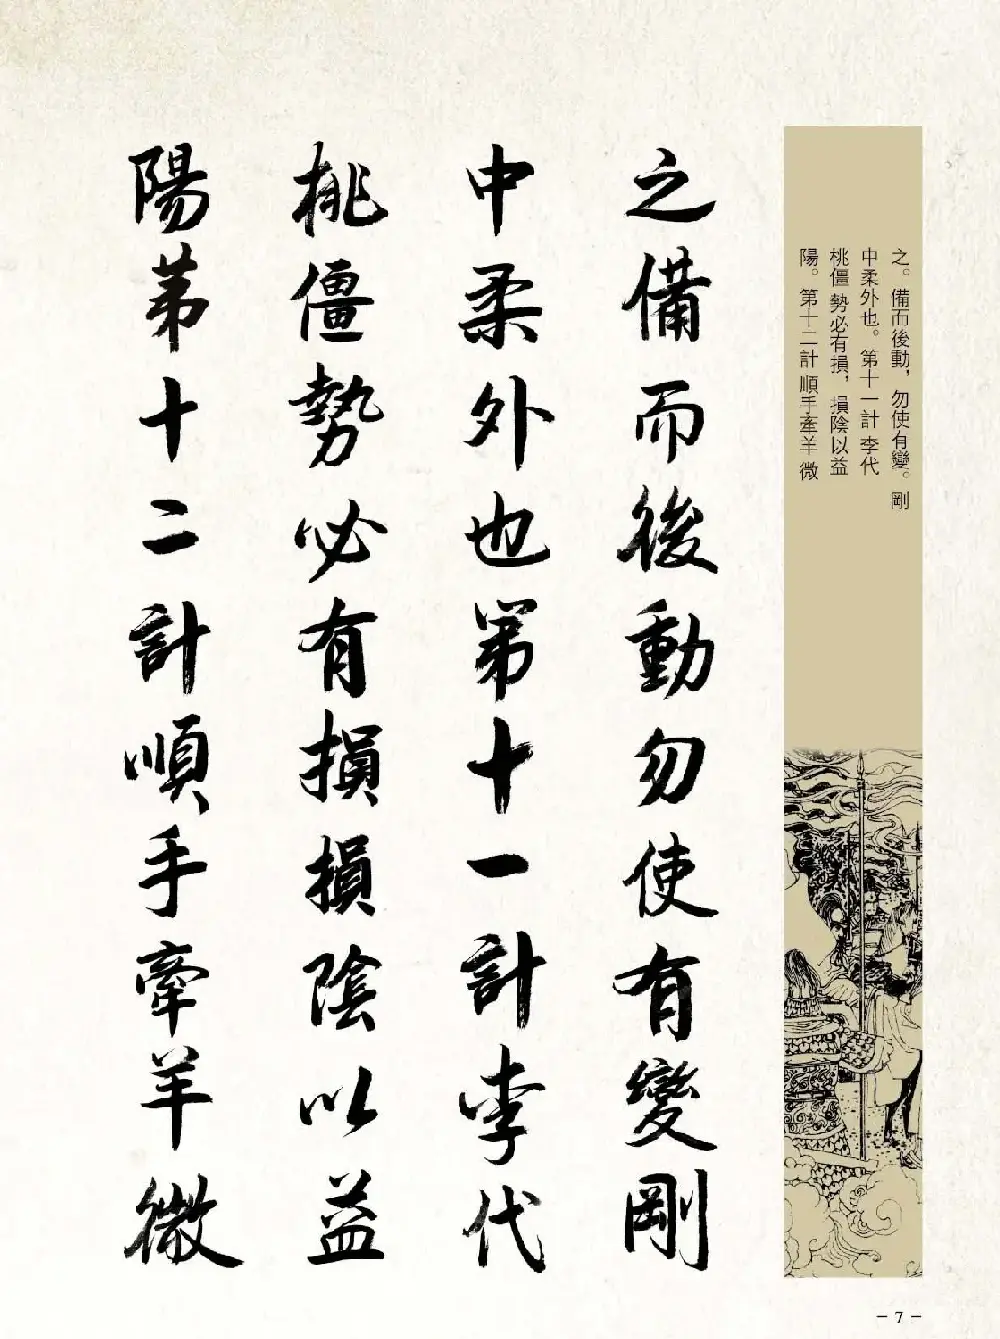 之。備而後動，勿使有變。剛
中柔外也。第十一計 李代
桃僵 勢必有損，損陰以益
陽。第十二計 順手牽羊 微
之備而後動勿使有變剛
中柔外也第十一計李代
桃僵勢必有損損陰以益
陽第十二計順手牽羊微
- 7 -